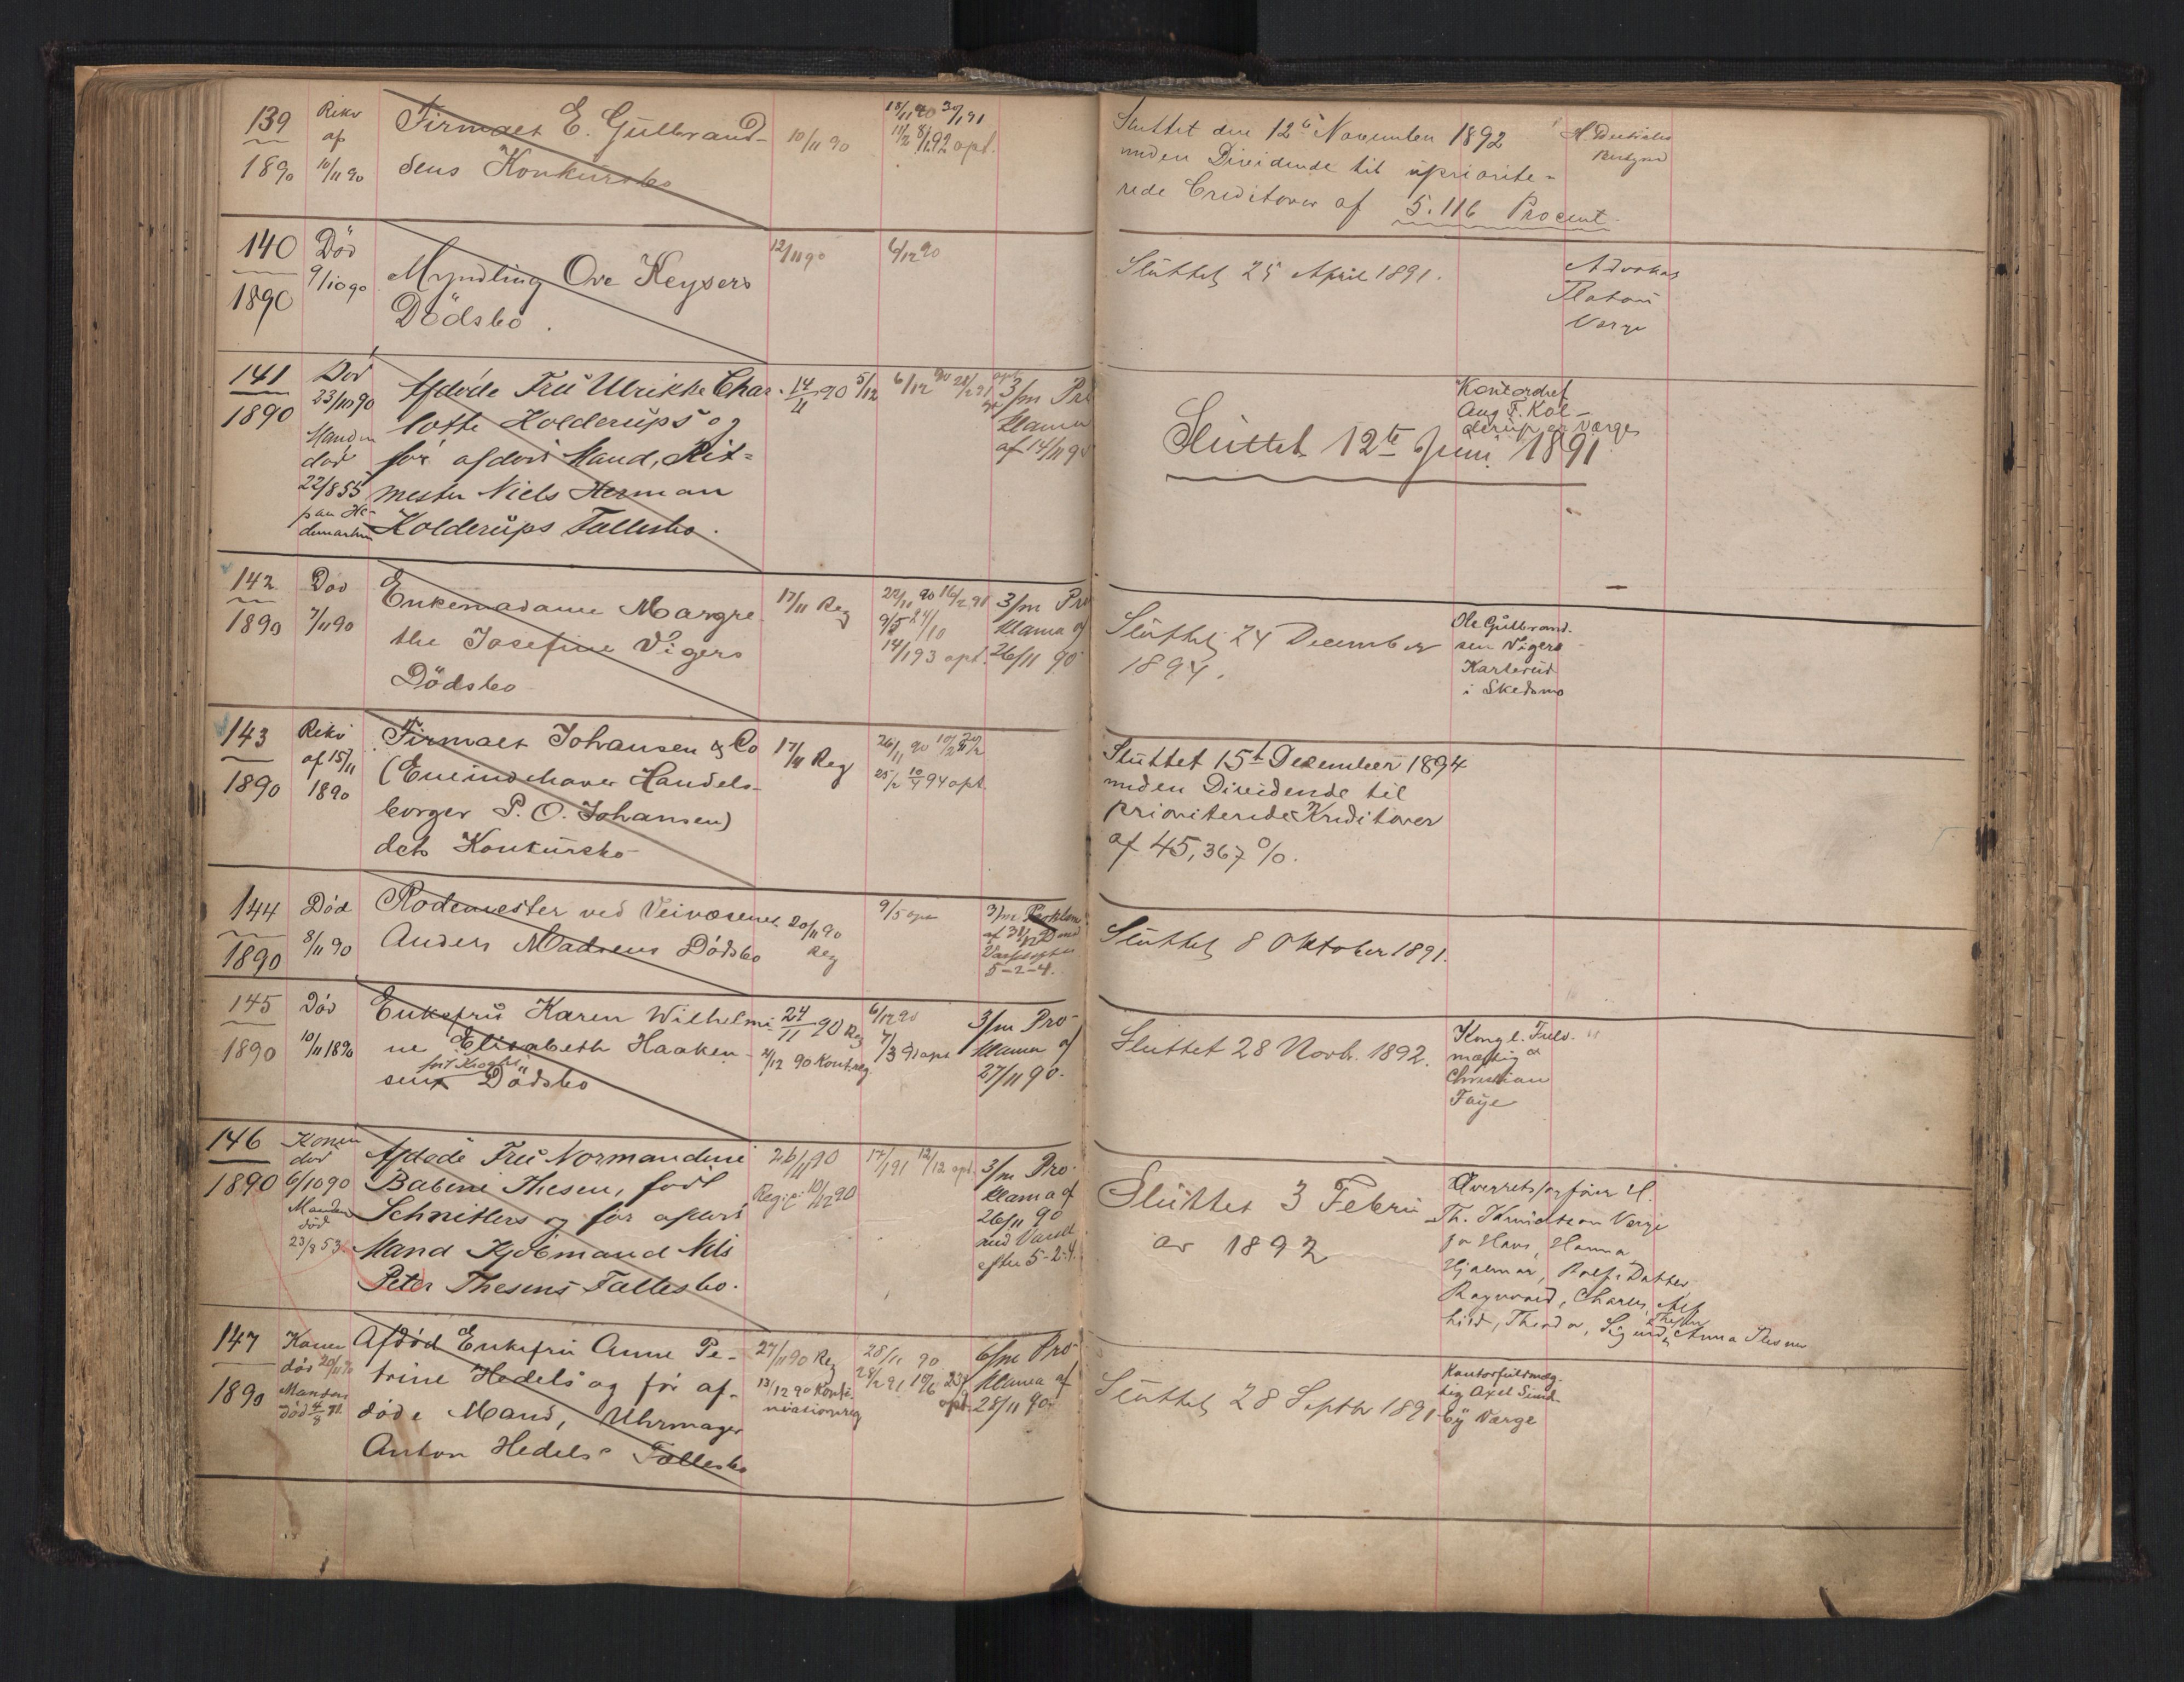 139
1890
Rekv
af
10/11 90
Firmaet E. Gulbrand-
sens Konkursbo
10/11 90
18/11 90 30/1 91
8/11 92 opt.
Sluttet den 12te November 1892
uden Dividende til upriorite-
rede Creditorer af 5.116 Procent.
140
1890
Död
9/10 90
Myndling Ove Keysers
Dödsbo.
12/11 90
6/12 90
Sluttet 25 April 1891.
Advokat
Platou
Verge
141
1890
Död
23/10 90
Manden
död
22/8 55
paa He-
demarken
Afdöde Fru Ulrikke Char-
lotte Kolderups og
för afdöde Mand, Rit-
mester Niels Herman
Kolderups Fællesbo.
14/11 90 5/12
6/12 90 28/2 91 opt
3/m Pro
klama
af 14/11 90
Sluttet 12te Juni 1891
Kontorchef
Aug F. Kol-
derup er Værge
142
1890
Död
7/11 90
Enkemadame Margre
the Josefine Vigers
Dödsbo
17/11 Reg
22/11 90 16/2 91
9/5 24/10
14/1 93 opt.
3/m Pro
klama af
26/11 90
Sluttet 24 December
1894.
Ole Gulbrand-
sen Vigers
Karlsrud
i Skedsmo
143
1890
Rekv
af 15/11
1890
Firmaet Johansen & Co
(Eneindehaver Handels-
borger P. O. Johansen)
dets Konkursbo
17/11 Reg
26/11 90
25/2 10/4 94 opt.
Sluttet 15de December 1894
uden Dividende til
prioriterede Kreditorer
af 45,367 %.
144
1890
Död
8/11 90
Rodemester ved Veivæsenet
Anders Madsens Dödsbo
20/11 90
Reg
9/5 opt
3/m Proklam
5-2-4.
Sluttet 8 Oktober 1891.
145
1890
Död
10/11 1890
Enkefru Karen Wilhelmi-
ne Elisabeth Haaken-
sens Dödsbo
24/11 90 Reg
4/12 90 Kont.reg.
6/12 90
7/3 91 opt
3/m Pro-
klama af
27/11 90.
Sluttet 28 Novbr. 1892.
Kongl. Fuld-
mægtig
Christian
Faye
146
1890
Konen
död
6/10 90
Manden
död
23/8 53
Afdöde Fru Normandine
Babine Thesen, född
Schnitlers og för afdöde
Mand Kjöbmand Nils
Peter Thesens Fællesbo.
26/11 90
Reg: 10/12 90
17/1 91 12/12 opt.
3/m Pro-
klama af
26/11 90
med Varsel
efter 5-2-4.
Sluttet 3 Febru
ar 1892
Overretssagförer H.
Th. Verge
for Hans, Hanna
Hjalmar, Rolf,
Ragnvald, Charles,
hild, Theodor, Sigurd, Anna
147
1890
Konen
död 20/11 90
Manden
död 4/8 91
Afdöd Enkefru Anne Pe-
trine Hedels og för af-
döde Mand, Uhrmager
Anton Hedels Fællesbo
27/11 90 Reg
13/12 90 Konti-
nuationsreg
28/11 90
28/2 91 10/6 23/9
opt.
6/m Pro-
klama af
28/11 90.
Sluttet 28 Septbr 1891
Kontorfuldmæg-
tig Axel Sund-
by Værge